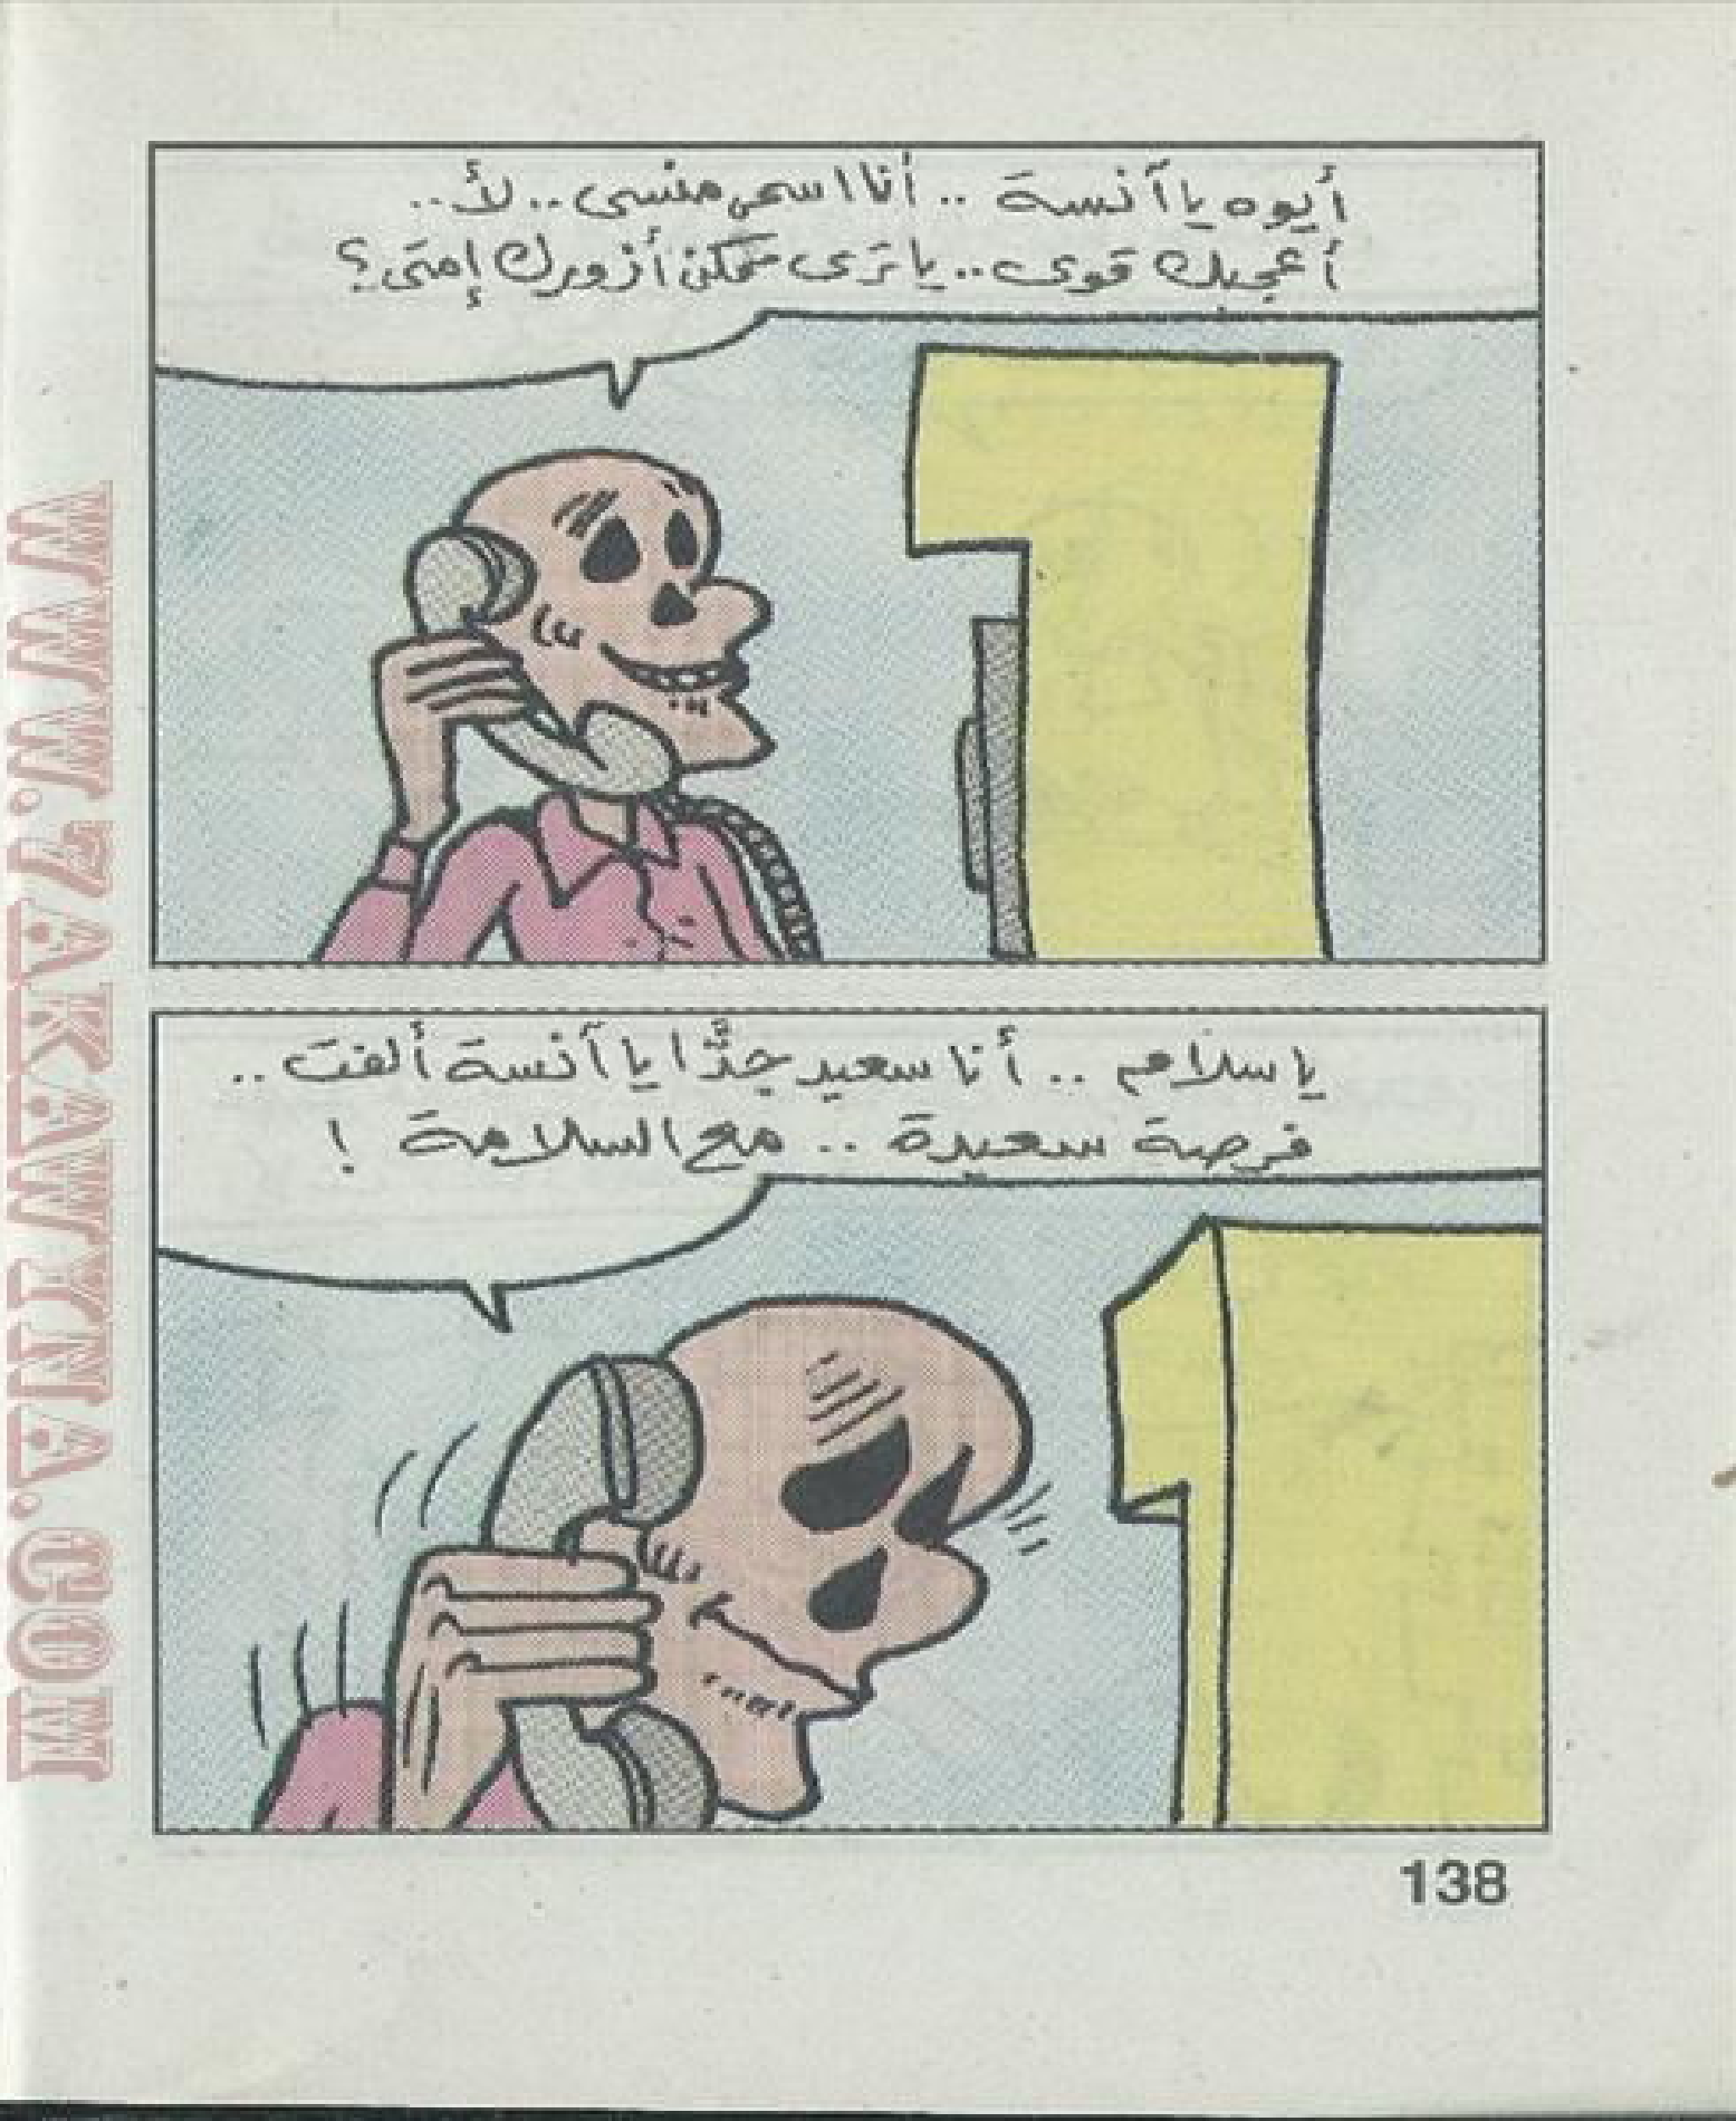 أيوه يا آنسة .. أنا اسمى منسى .. لأ ..
أعجبك قوى .. يا ترى ممكن أزورك إمتى؟
يا سلام .. أنا سعيد جدًّا يا آنسة ألفت ..
فرصة سعيدة .. مع السلامة !
138
WWW.ZAKAWKNA.COM